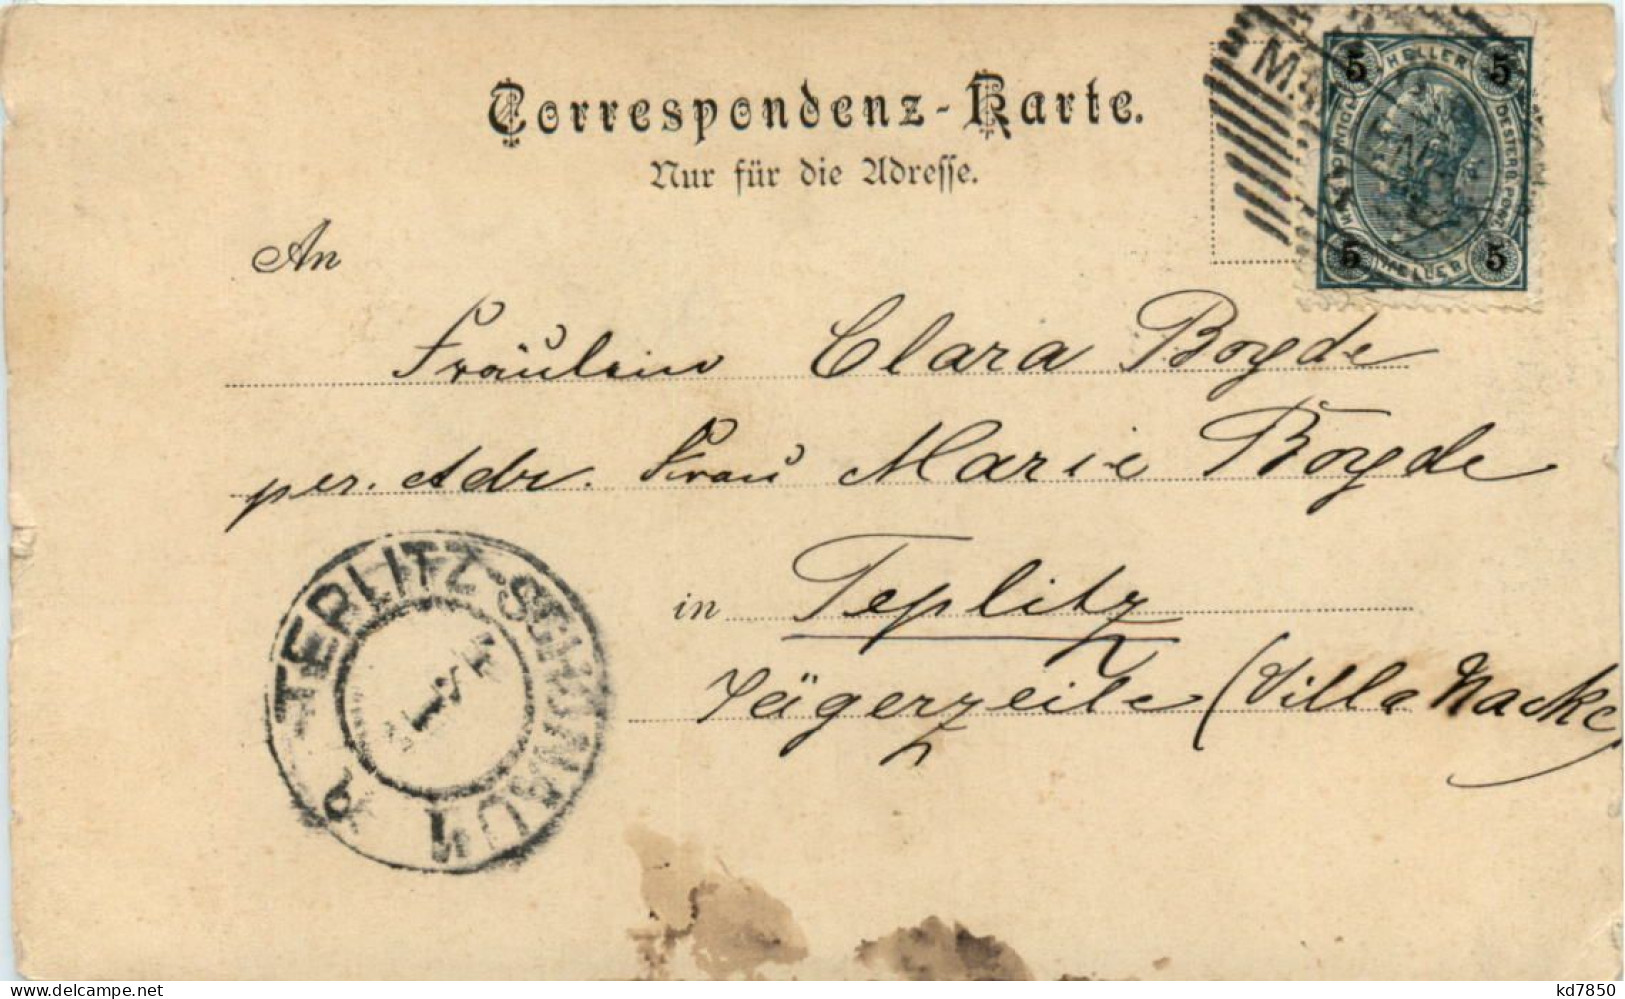 Correspondenz-Karte.
Nur für die Adresse.
HELLER
5 5
5 5
HELLER
An
Fräulein Clara Boyde
per. Adr. Frau Marie Boyde
in Teplitz
Jägerzeile (Villa Nacke)
TEPLITZ-SCHÖNAU 1
delcampe.net
kd7850